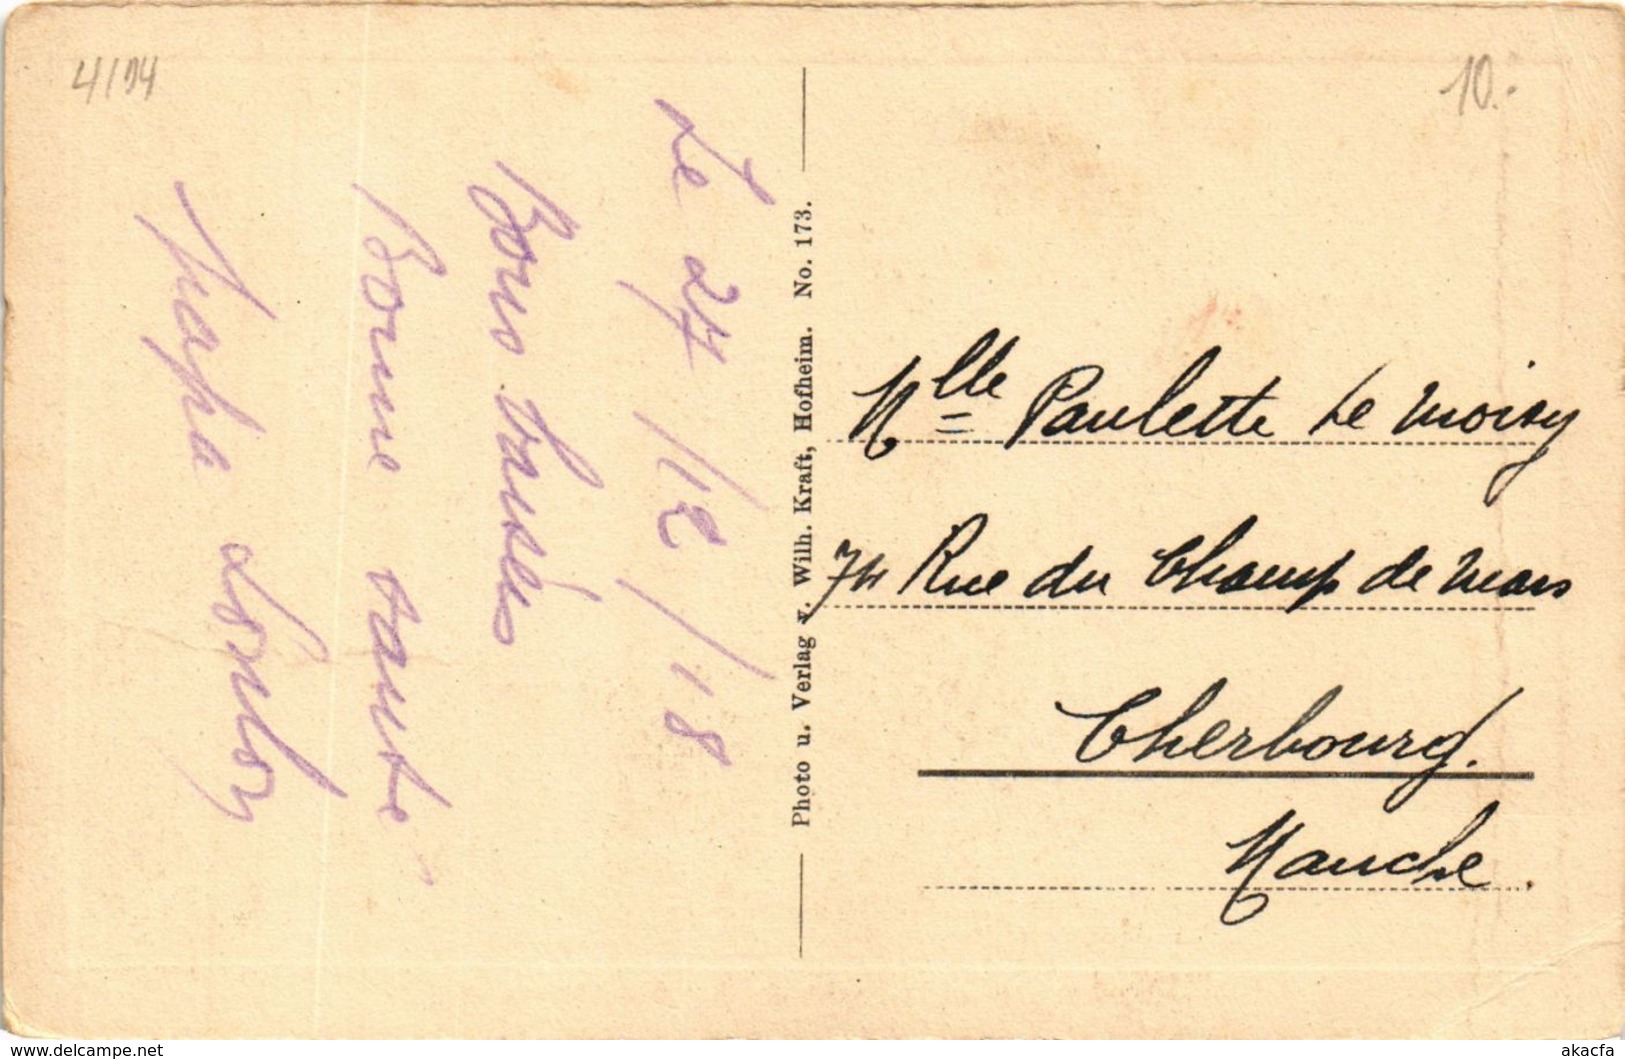 4194
10.-
Le 27/12/18
Bons baisers
Bonne santé
Photo u. Verlag v. Wilh. Kraft, Hofheim. No. 173.
Mlle Paulette Le Moisy
74 Rue du Champ de Mars
Cherbourg.
Manche.
www.delcampe.net
akacfa